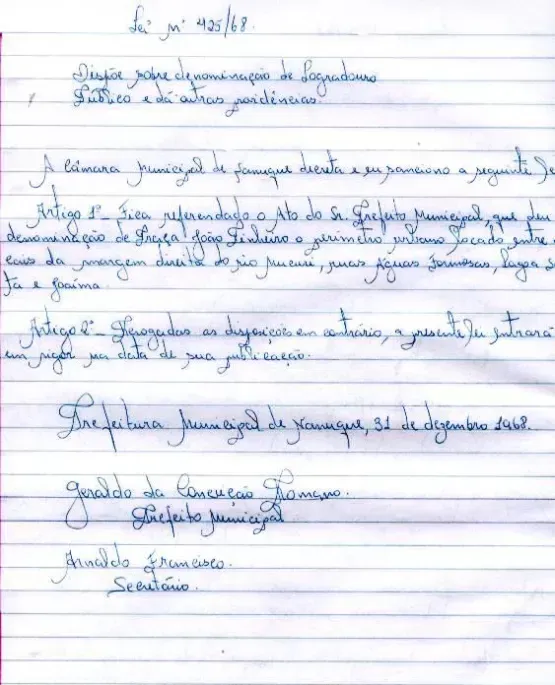 Lei nº 425/68.
Dispõe sobre denominação de Logradouro
Público e dá outras providências.
A Câmara Municipal de Nanuque decreta e eu sanciono a seguinte Le
Artigo 1º - Fica referendado o Ato do Sr. Prefeito Municipal, que deu
denominação de Praça João Pinheiro o perímetro urbano locado entre
cais da margem direita do rio Mucuri, ruas Águas Formosas, Lagoa S
ta e Joaíma.
Artigo 2º - Derogadas as disposições em contrário, a presente lei entrará
em vigor na data de sua publicação.
Prefeitura Municipal de Nanuque, 31 de dezembro 1968.
Geraldo da Conceição Romano.
Prefeito Municipal
Arnaldo Francisco.
Secretário.